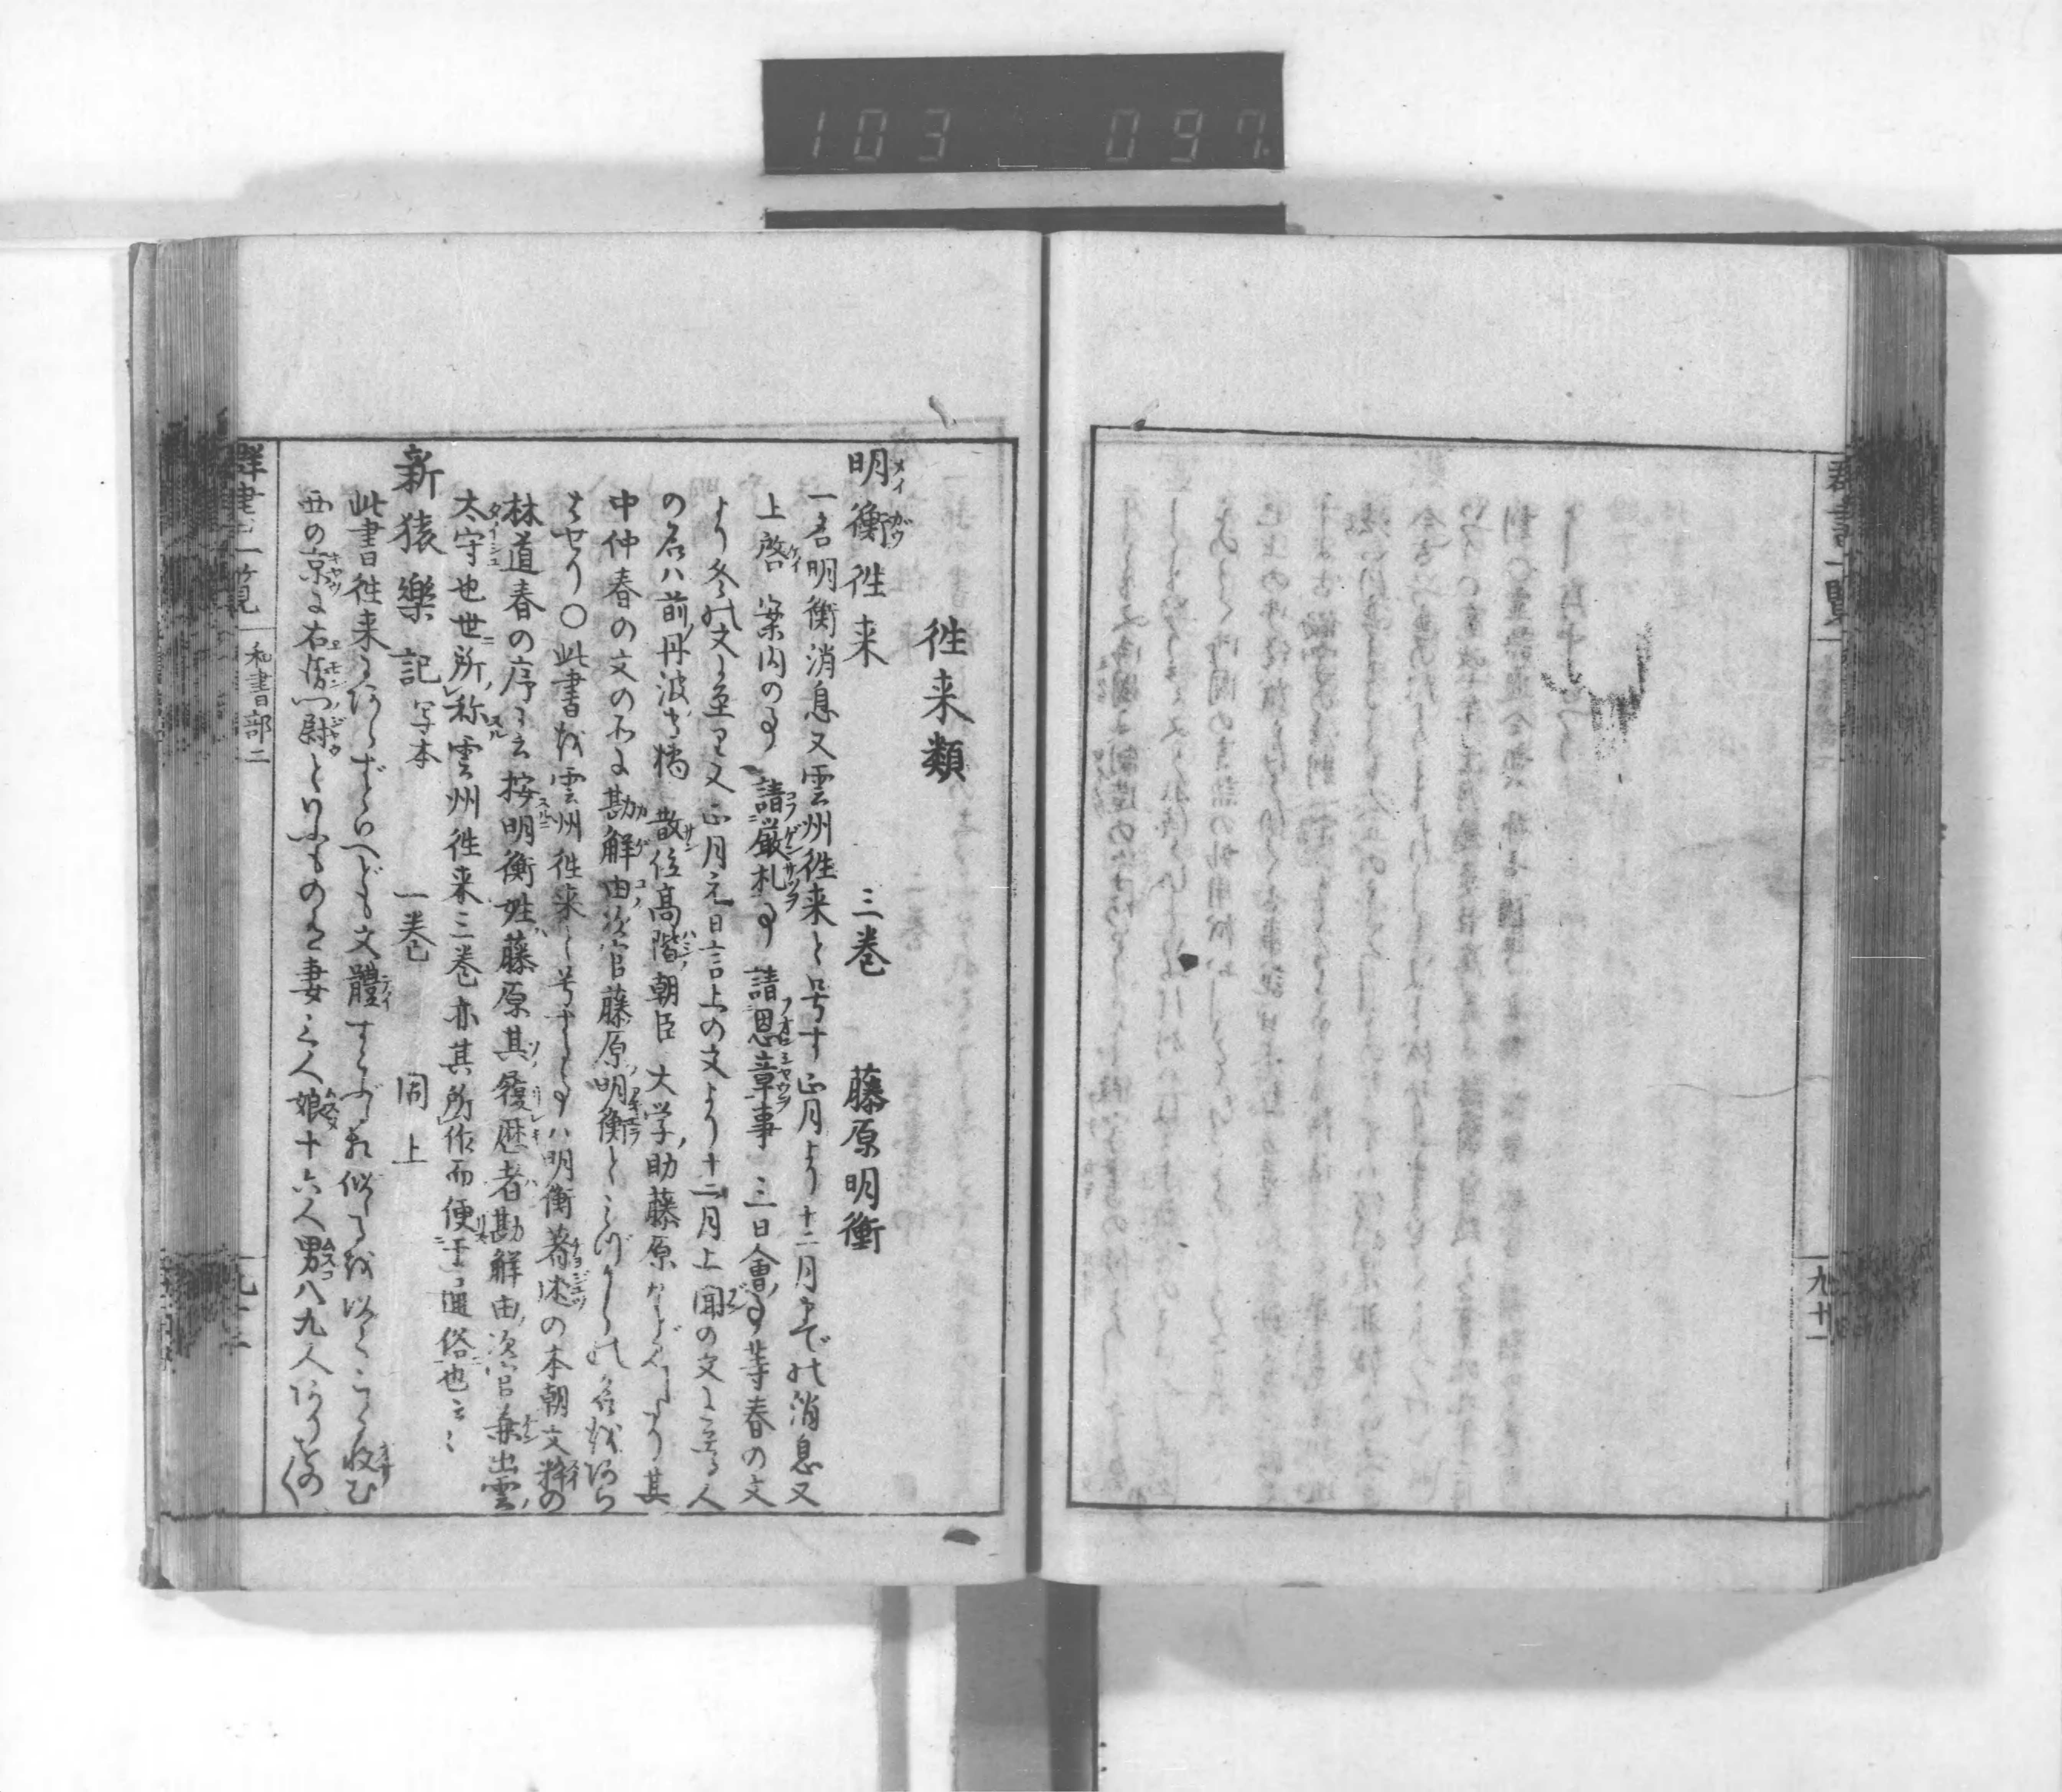 103 097
群書一覧
九十一
徃来類
明衡徃来 三巻 藤原明衡
一名明衡消息又雲州徃来と号す正月より十二月まで能消息又
上啓 案内の事 請厳札事 請恩章事 三日會事等春の文
より冬能文に至り又正月元日言上の文より十二月上聞の文に至る人
の名ハ前丹波守橘 散位髙階朝臣 大学助藤原などゝあり其
中仲春の文の所に勘解由次官藤原明衡とミづからの名をあら
はせり〇此書を雲州徃来と号することハ明衡著述の本朝文粹の
林道春の序に云按明衡姓藤原其履歴者勘解由次官兼出雲
太守也世所称雲州徃来三巻亦其所作而便于通俗也云々
新猿樂記 写本 一巻 同上
此書徃来にあらずといへども文體すこぶる相似たるを以てこゝに收む
西の京に右衛門尉といふもの有妻三人娘十六人男八九人ありその
群書一覧 和書部二
九十二